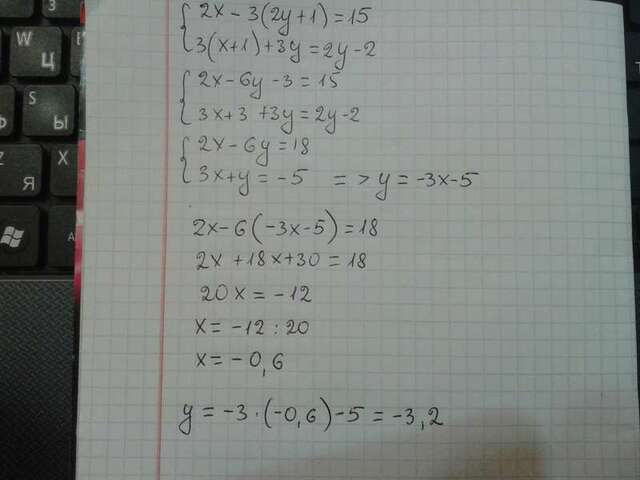 2x - 3(2y+1) = 15
3(x+1)+3y = 2y-2
2x-6y-3 = 15
3x+3 +3y = 2y-2
2x-6y = 18
3x+y = -5 => y = -3x-5
2x-6(-3x-5) = 18
2x +18x+30 = 18
20x = -12
x = -12 : 20
x = -0,6
y = -3·(-0,6)-5 = -3,2
З
W
Ц
S
Ы
Z
X
Я